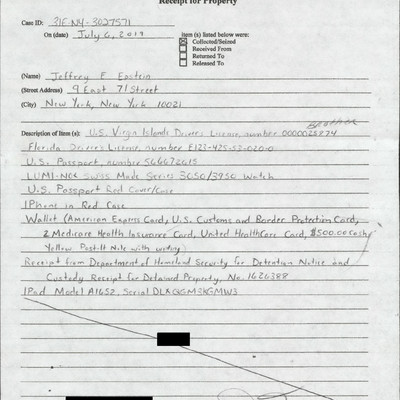 Receipt for Property
Case ID: 31E-NY-3027571
On (date) July 6, 2019
item(s) listed below were:
Collected/Seized
Received From
Returned To
Released To
(Name) Jeffrey E Epstein
(Street Address) 9 East 71 Street
(City) New York, New York 10021
Description of Item(s): U.S. Virgin Islands Drivers License, number
Florida Drivers License, number E123-425-53-020-0
U.S. Passport, number
LUMI-NOX Swiss Made Series 3050/3950 Watch
U.S. Passport Red Cover/Case
IPhone in Red Case
Wallet (American Express Card, U.S. Customs and Border Protection Card,
2 Medicare Health Insurance Card, United HealthCare Card, $500.00 Cash,
Yellow Post-It Note with writing)
Receipt from Department of Homeland Security for Detention Notice and
Custody Receipt for Detained Property, No. 1626388
IPad Model A1652, Serial